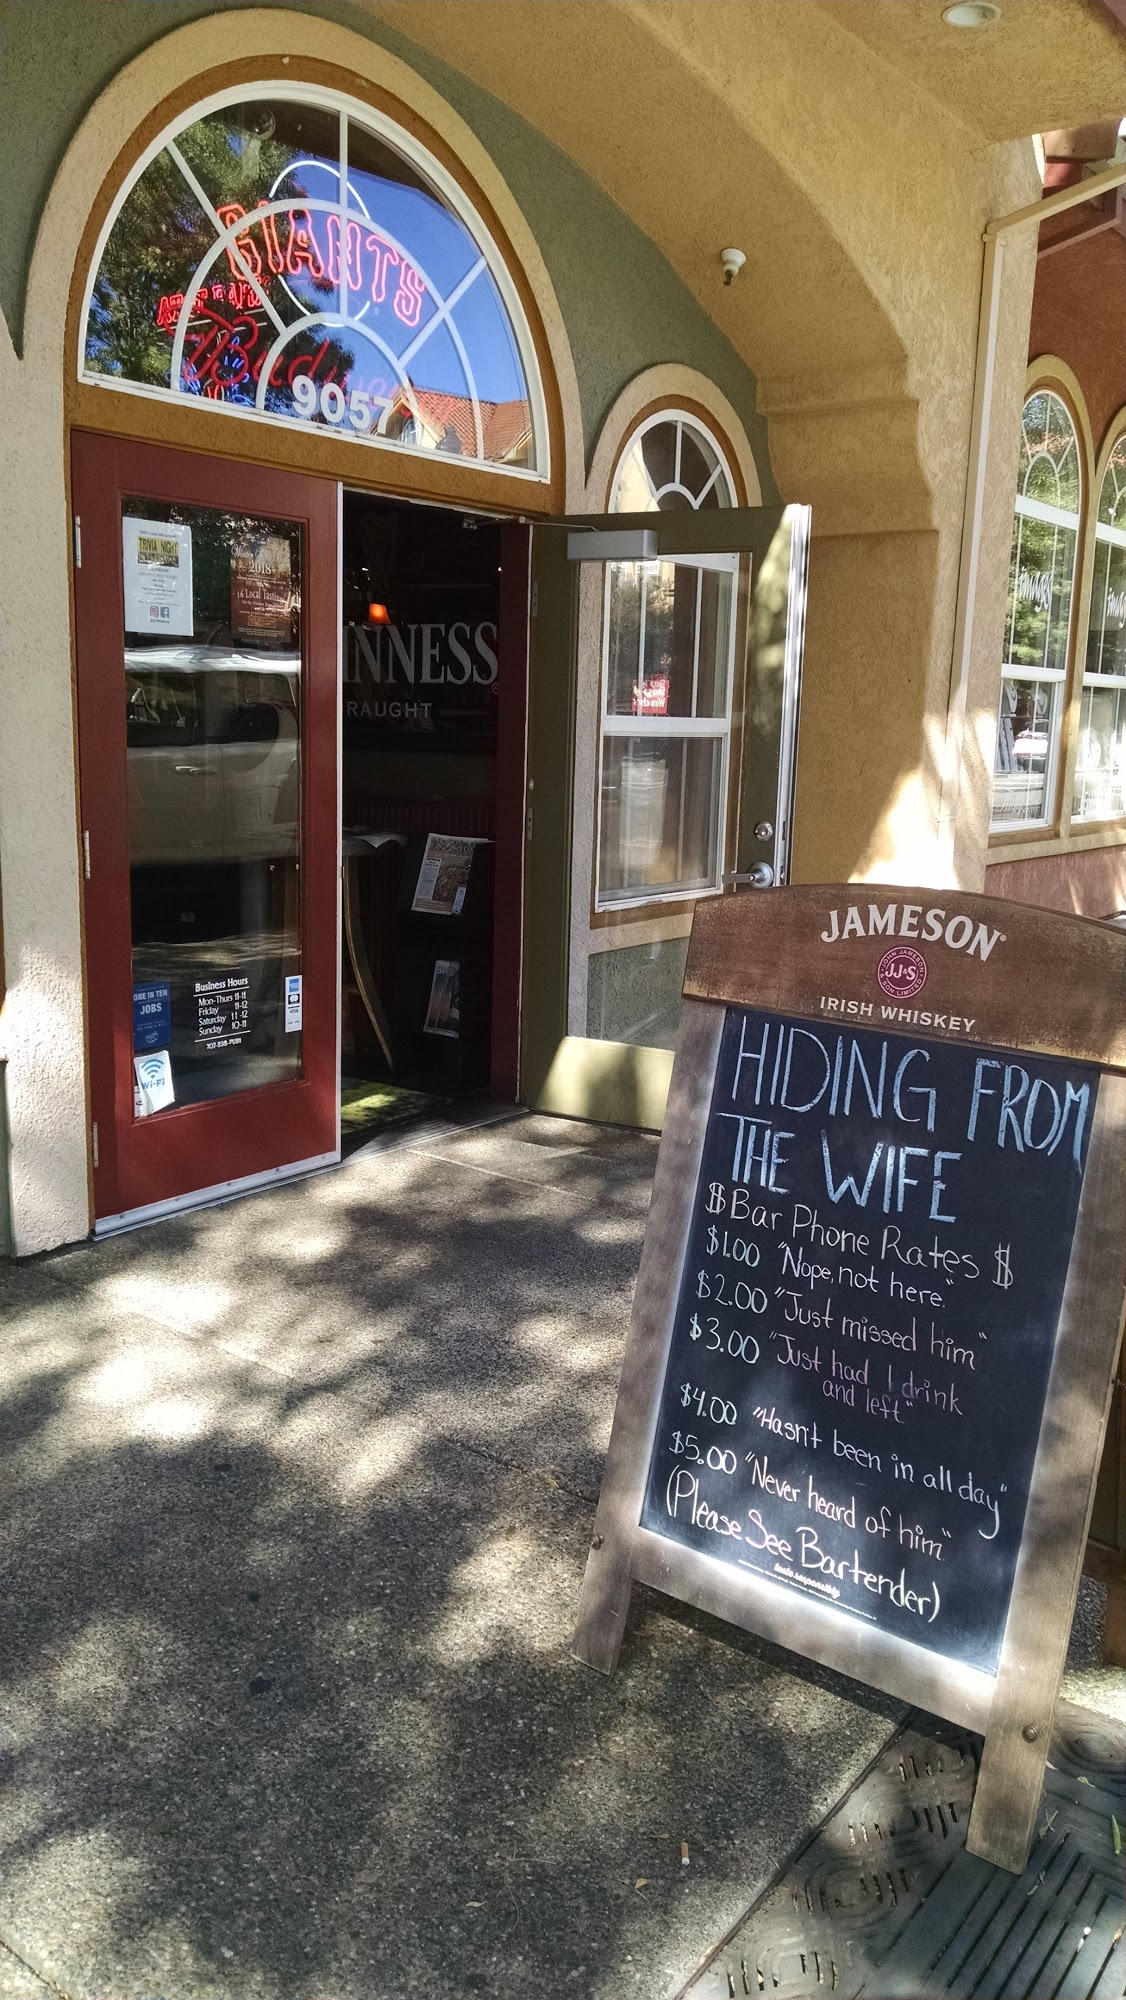 GIANTS
AT&T PARK
Budweiser
9057
TRIVIA NIGHT
2018
16 Local Tasting
INNESS
RAUGHT
ONE IN TEN
JOBS
Business Hours
Mon-Thurs 11-11
Friday 11-12
Saturday 11-12
Sunday 10-11
707-838-PUB1
VISA
Wi-Fi
JAMESON
JOHN JAMESON
JJ&S
SON LIMITED
IRISH WHISKEY
HIDING FROM
THE WIFE
$Bar Phone Rates $
$1.00 "Nope, not here."
$2.00 "Just missed him"
$3.00 "Just had 1 drink
and left."
$4.00 "Hasn't been in all day"
$5.00 "Never heard of him"
(Please See Bartender)
taste responsibly